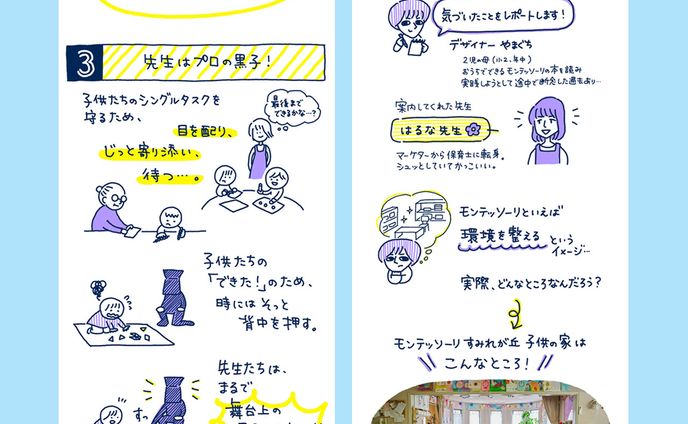 3
先生はプロの黒子！
子供たちのシングルタスクを
守るため、
最後まで
できるかな…？
目を配り、
じっと寄り添い、
待つ…。
子供たちの
「できた！」のため、
時にはそっと
背中を押す。
先生たちは、
まるで
すっ
舞台上の
気づいたことをレポートします！
デザイナー やまぐち
2児の母(小2、年中)
おうちでできるモンテッソーリの本を読み
実践しようとして途中で断念した過去あり…
案内してくれた先生
はるな先生
マーケターから保育士に転身。
シュッとしていてかっこいい。
モンテッソーリといえば
環境を整える という
イメージ…
実際、どんなところなんだろう？
モンテッソーリ すみれが丘 子供の家は
こんなところ！